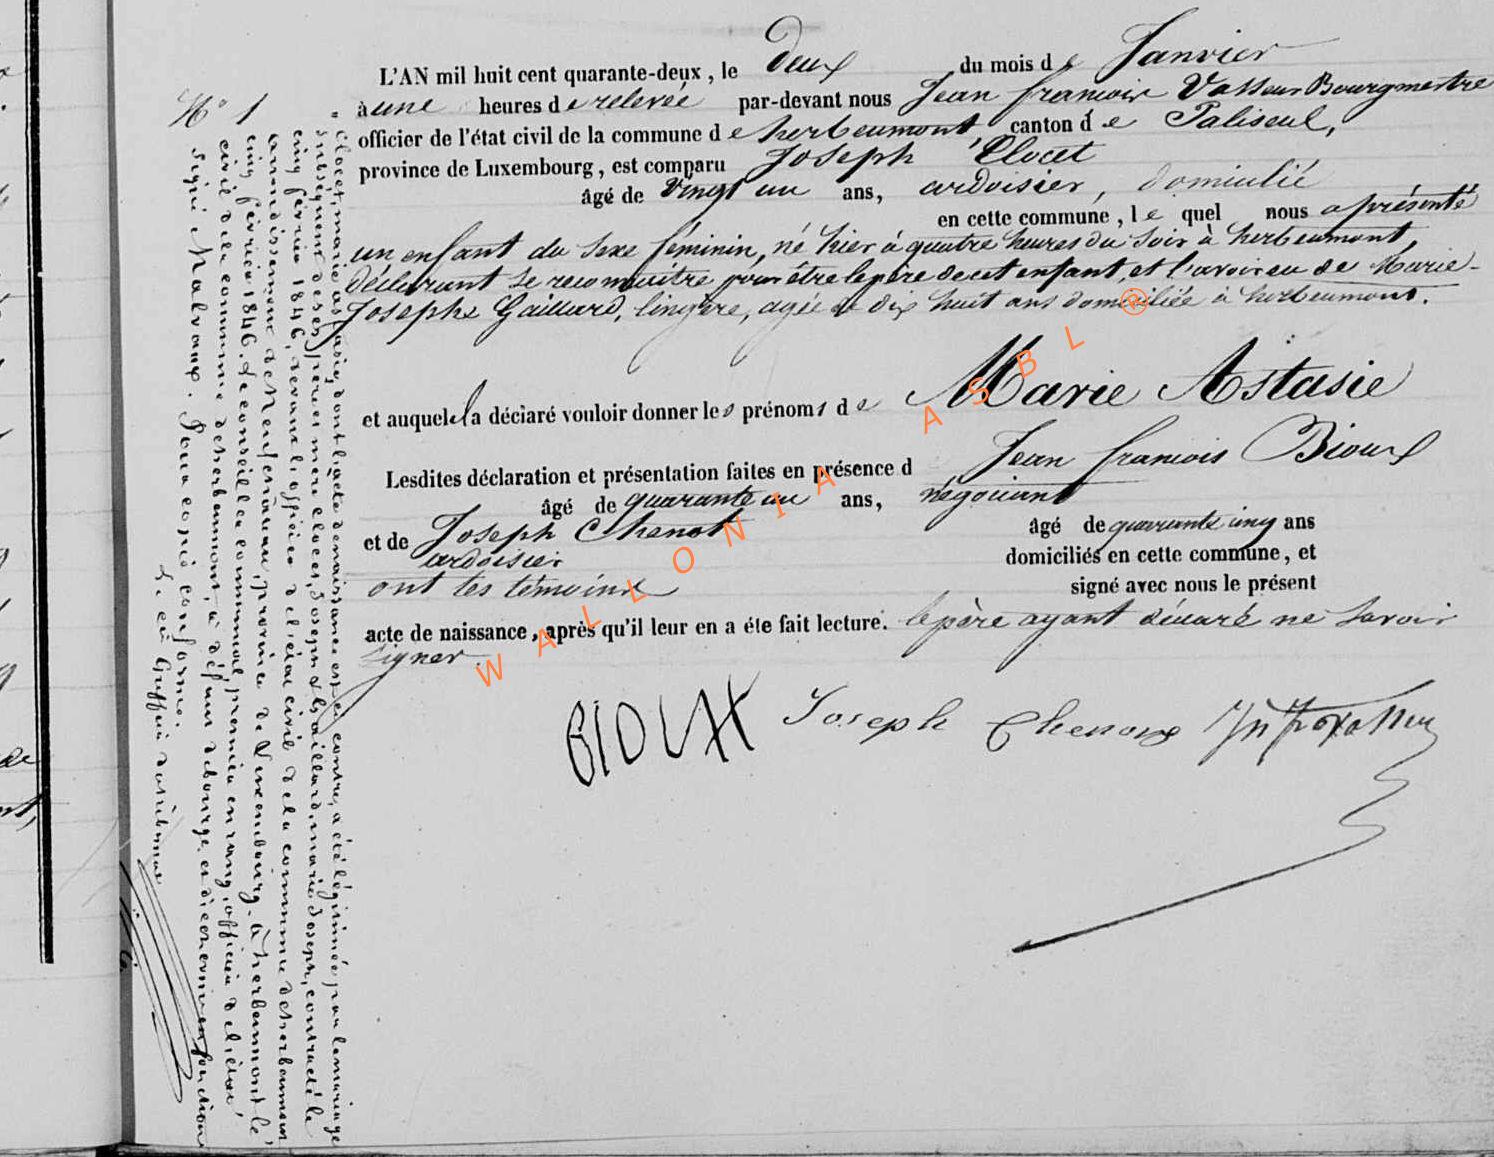 L'AN mil huit cent quarante-deux, le deux du mois de Janvier
à une heures de relevée par-devant nous Jean francois Vasseur Bourgmestre
officier de l'état civil de la commune de herbeumont, canton de Paliseul,
province de Luxembourg, est comparu Joseph Clocet
âgé de vingt un ans, ardoisier, domicilié
en cette commune, lequel nous a présenté
un enfant du sexe féminin, né hier à quatre heures du soir à herbeumont,
déclarant se reconnaitre pour être le père de cet enfant, et l'avoir eu de Marie-
Josephe Gaillard, lingère, agée de dix huit ans domiciliée à herbeumont.
et auquel il a déclaré vouloir donner les prénoms de Marie Astasie
Lesdites déclaration et présentation faites en présence d Jean francois Bioux
âgé de quarante un ans, négociant
et de Joseph Chenot âgé de quarante cinq ans
ardoisier domiciliés en cette commune, et
ont les témoins signé avec nous le présent
acte de naissance, après qu'il leur en a été fait lecture. le père ayant déclaré ne savoir
signer.
BIOUX Joseph Chenot
N° 1
" Clocet, marie astasie, dont l'acte de naissance est ci contre, a été légitimée, par le mariage
subséquent de ses père et mère Clocet, Joseph & Gaillard, marie Joseph, contracté le
cinq février 1846, devant l'officier de l'état civil de la commune d'herbeumont
arrondissement de Neufchâteau, province de Luxembourg. à herbeumont le
cinq février 1846. Le conseiller communal, premier en rang, officier de l'état
civil de la commune d'herbeumont, à défaut de bourge. et d'échevin en fonction
signé Malvaux. Pour copie conforme.
Le Greffier du tribunal
WALLONIA ASBL ®